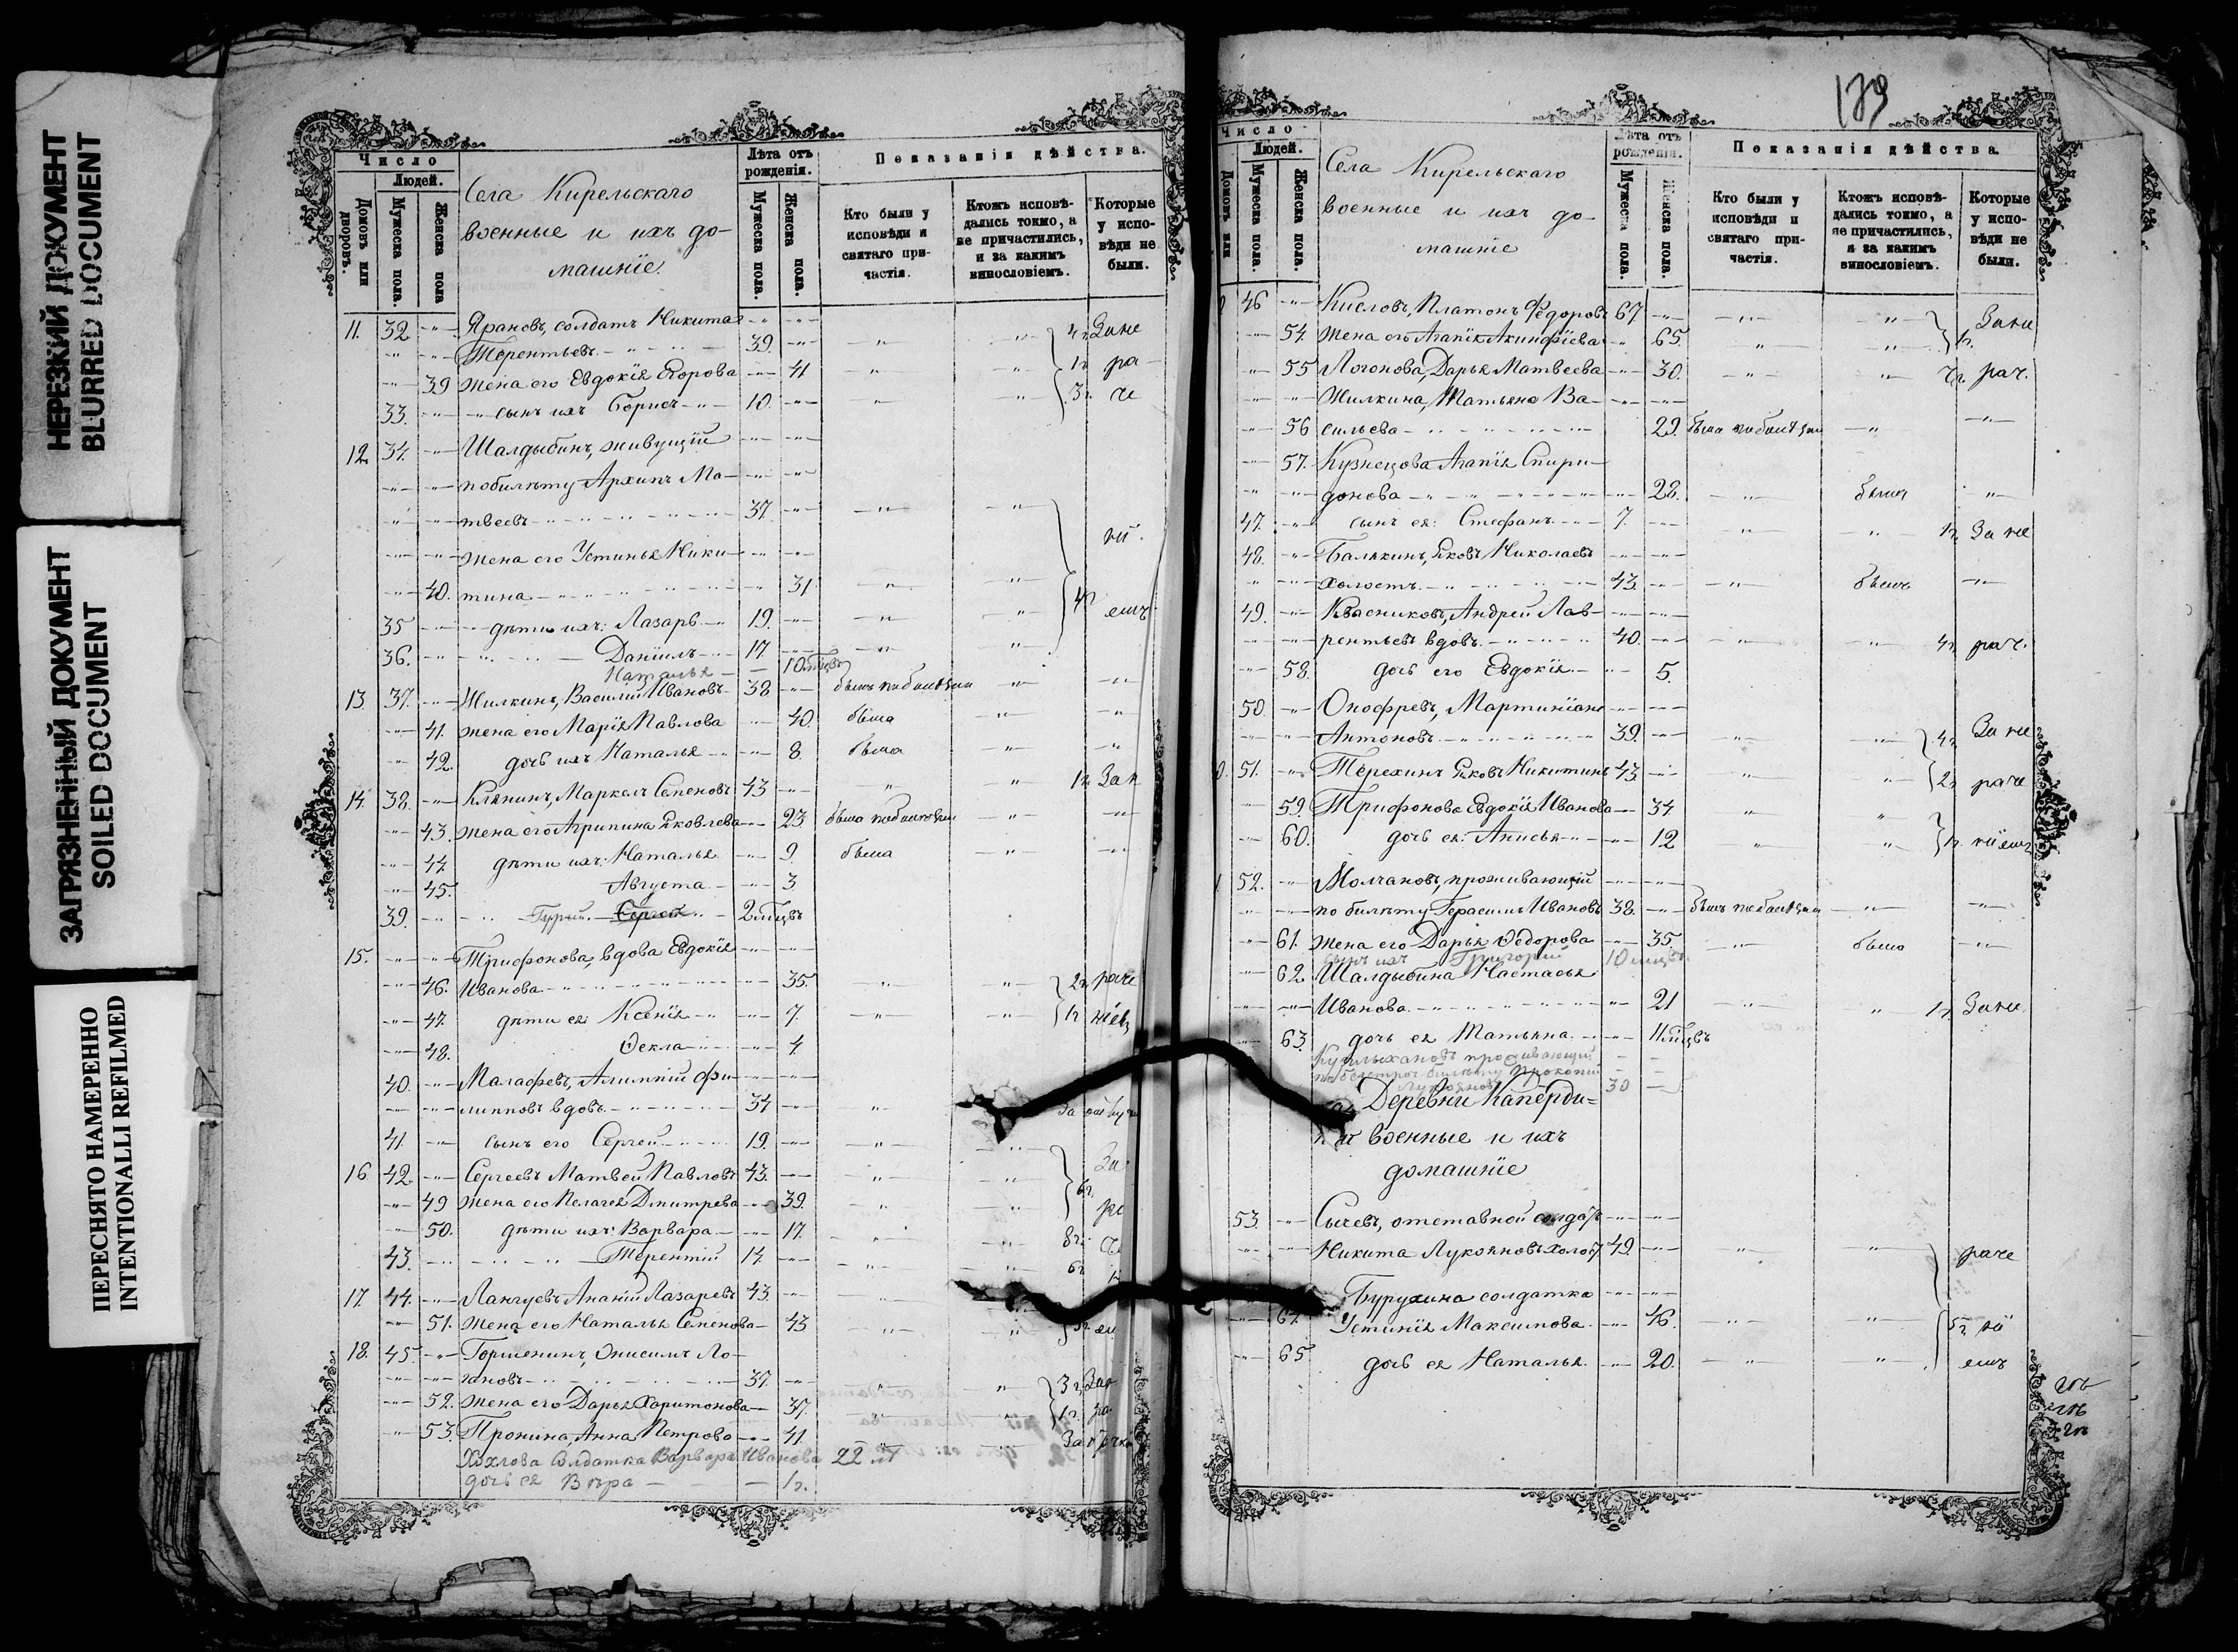 НЕРЕЗКИЙ ДОКУМЕНТ
BLURRED DOCUMENT
ЗАГРЯЗНЕННЫЙ ДОКУМЕНТ
SOILED DOCUMENT
ПЕРЕСНЯТО НАМЕРЕННО
INTENTIONALLI REFILMED
Число
Людей.
Домовъ или дворовъ.
Мужеска пола.
Женска пола
Села Кирельскаго
военные и ихъ до-
машніе.
Лѣта отъ рожденія.
Мужеска пола.
Женска пола.
Показанія дѣйства.
Кто были у исповѣди и святаго при-частія.
Ктожъ исповѣ-дались токмо, а не причастились, и за какимъ винословіемъ.
Которые у испо-вѣди не были.
11. 32 Ярановъ, солдатъ Никита
Терентьевъ 39. 4 г. Зане
39 жена его Евдокія Егорова 41 1 г. ра
33. сынъ ихъ Борисъ 10. 3 г. че
12 34. Шалдыбинъ, живущій
по билѣту Архипъ Ма-
твеевъ 37.
жена его Устинья Ники- ні
40. тина 31 4 г.
35 дѣти ихъ: Лазарь 19. емъ
36. Даніилъ 17.
Наталья 10 мцвъ
13. 37. Жилкинъ, Василій Ивановъ 38
41. жена его Марія Павлова 40. была
42. дочь ихъ Наталья 8. была
14. 38. Клянинъ, Маркелъ Семеновъ 43 1 г. Зан
43. жена его Агрипина Яковлева 23.
44. дѣти ихъ: Наталья 9. была
45. Августа 3
39. Гурій Сергей 2 мцвъ
15. Трифонова, вдова Евдокія
46. Иванова 35. 2 г. раче
47. дѣти ея: Ксенія 7. 1 г. ніем
48. Ѳекла 4.
40. Малафеевъ, Алимпій Фи-
липповъ вдовъ 34
41. сынъ его Сергей 19.
16 42 Сергеевъ Матвей Павловъ 43. За
49 жена его Пелагея Дмитрева 39. 6 г.
50. дѣти ихъ: Варвара 17.
43. Терентій 14. 6 г.
17. 44. Лангуевъ Ананій Лазаревъ 43.
51. жена его Наталья Семенова 43
18. 45. Горшенинъ, Онисимъ Ло-
гиновъ 37. 3 г. Зан
52. жена его Дарья Харитонова 37. 1 г. ра
53. Пронина, Анна Петрова 41
Хохлова Солдатка Варвара Иванова 22 лѣ
дочь ея Вѣра 1 г.
139
Число
Людей.
Домовъ или
Мужеска пола.
Женска пола.
Села Кирельскаго
военные и ихъ до-
машніе
Лѣта отъ рожденія.
Мужеска пола.
Женска пола.
Показанія дѣйства.
Кто были у исповѣди и святаго при-частія.
Ктожъ исповѣ-дались токмо, а не причастились, и за какимъ винословіемъ.
Которые у испо-вѣди не были.
46 Кисловъ, Платонъ Федоровъ 67 Зане
54. жена его Агапія Акинфіева 65. 1 г.
55 Логонова, Дарья Матвеева 30. рач.
Жилкина, Татьяна Ва-
56 сильева 29.
57. Кузнецова Агапія Спири-
донова 28.
47. сынъ ея: Стефанъ 7. 1 г. Зане
48. Балякинъ, Яковъ Николаевъ
холостъ 43. былъ
49. Квасниковъ, Андрей Лав-
рентьевъ вдовъ 40. 4 г. рач.
58. дочь его Евдокія 5.
50. Онофревъ, Мартиніанъ
Антоновъ 39. 4 г. Зане
51. Терехинъ Яковъ Никитинъ 43 2 г. раче
59. Трифонова Евдокія Иванова 34
60. дочь ея: Анисья 12 1 г. ніемъ
52. Молчановъ, проживающій
по билѣту Герасимъ Ивановъ 38.
61. жена его Дарья Ѳедорова 35. была
сынъ ихъ Григорій 10 мцвъ
62. Шалдыбина Настасья
Иванова 21 1 г. Зане
63. дочь ея Татьяна 11 мцвъ
проживающій
билѣту Прокопій
30
Деревни Каперди=
военные и ихъ
домашніе
53. Сычевъ, отставной солдатъ
Никита Лукояновъ холос 49. раче
Бурухина солдатка
64. Устинія Максимова 46. 5 г. ні
65 дочь ея Наталья 20. емъ